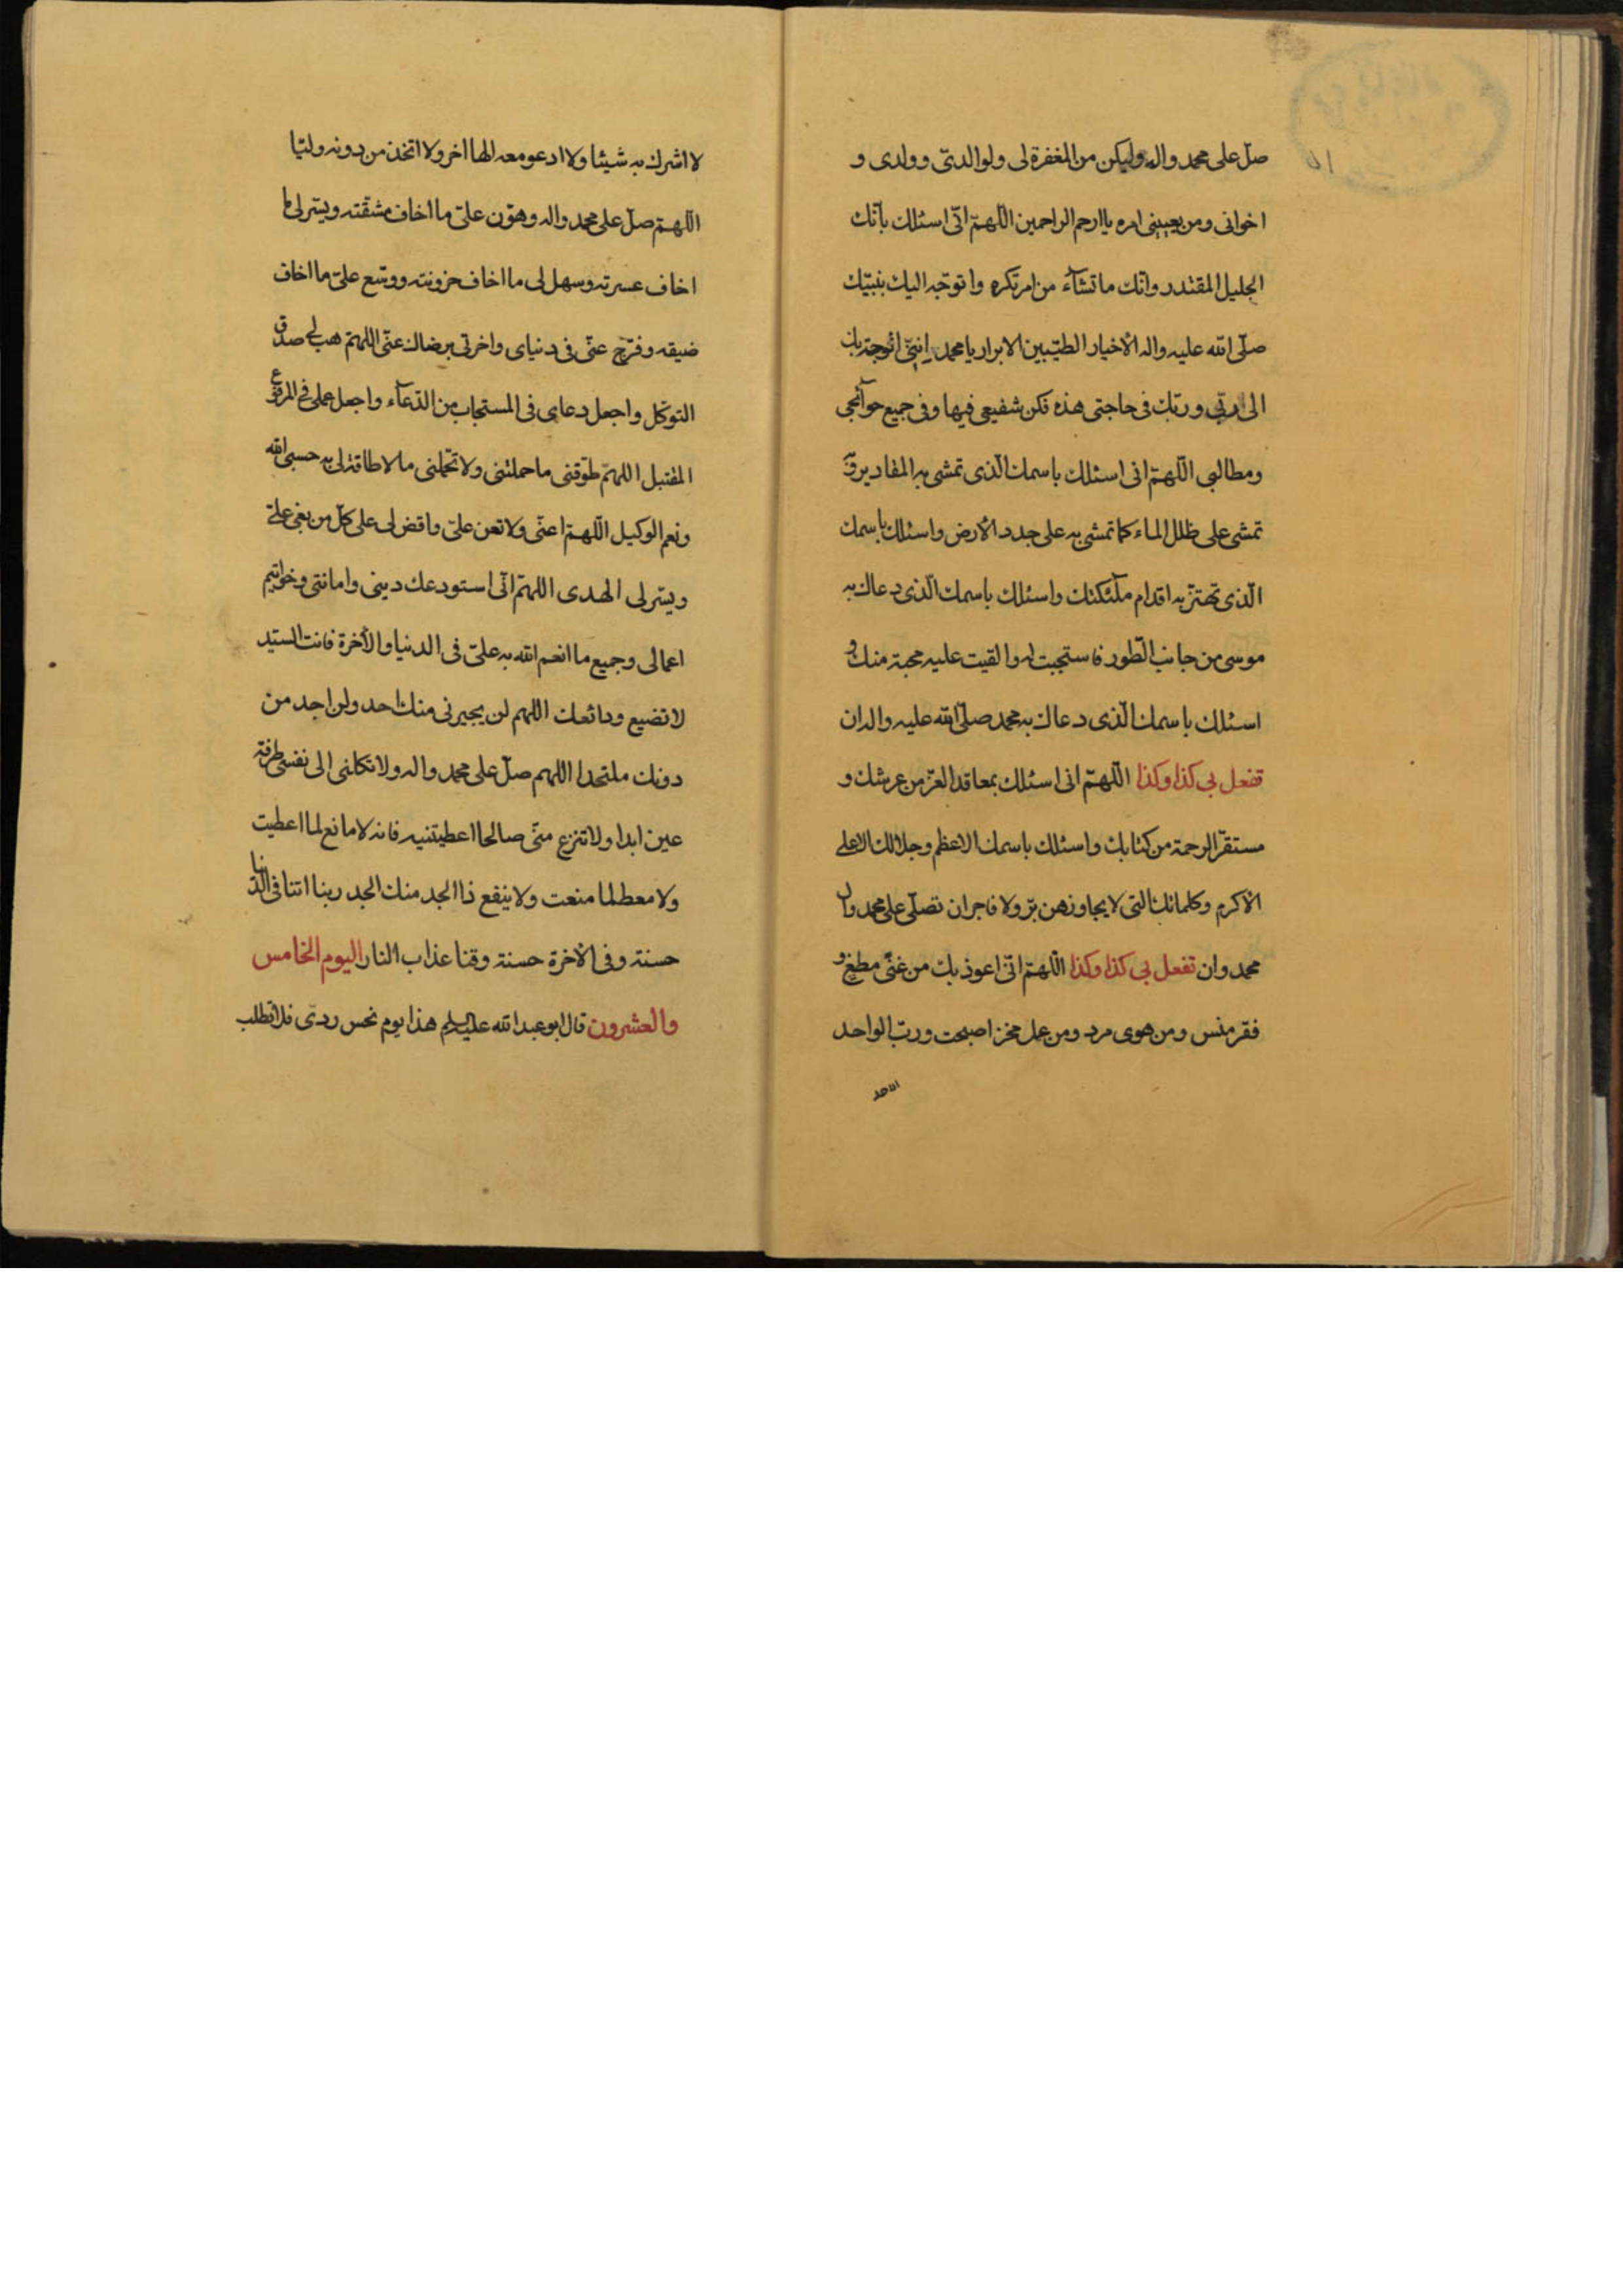 صل على محمد واله وليكن من المغفرة لى ولوالدىّ وولدى و
اخوانى ومن يعنينى امره ياارحم الراحمين اللّهمّ انّى اسئلك بانّك
الجليل المقتدر وانّك ماتشآء من امر تكره واتوجّه اليك بنبيّك
صلّى الله عليه واله الأخيار الطيّبين الابرار يامحمد انّى اتوجّه بك
الى ربّى وربّك فى حاجتى هذه فكن شفيعى فيها وفى جميع حوآئجى
ومطالبى اللّهمّ انى اسئلك باسمك الّذى تمشى به المقادير وبه
تمشى على ظلل الماء كما تمشى به على جدد الأرض واسئلك باسمك
الّذى تهتزّ به اقدام ملٓئكتك واسئلك باسمك الّذى دعاك به
موسى من جانب الطّور فاستجبت له والقيت عليه محبة منك و
اسئلك باسمك الّذى دعاك به محمد صلّى الله عليه واله ان
تفعل بى كذا وكذا اللّهمّ انى اسئلك بمعاقد العزّ من عرشك و
مستقرّ الرحمة من كتابك واسئلك باسمك الاعظم وجلالك الاعلى
الأكرم وكلماتك التى لايجاوزهن برّ ولا فاجر ان تصلّى على محمد وال
محمد وان تفعل بى كذا وكذا اللّهمّ انّى اعوذ بك من غنًى مطغ و
فقر منس ومن هوى مرد ومن عمل مخز اصبحت وربّ الواحد
الاحد
لا اشرك به شيئا ولا ادعو معه الها اخر ولا اتخذ من دونه وليّا
اللّهمّ صلّ على محمد واله وهوّن علىّ ما اخاف مشقّته ويسّر لى ما
اخاف عسرته وسهل لى ما اخاف حزونته ووسّع علىّ ما اخاف
ضيقه وفرّج عنّى فى دنياى واخرتى برضاك عنّى اللهمّ هب لى صدق
التوكّل واجعل دعاى فى المستجاب من الدّعآء واجعل عملى فى المرفوع
المتقبل اللهمّ طوّقنى ما حملتنى ولا تحمّلنى ما لاطاقة لى به حسبى الله
ونعم الوكيل اللّهمّ اعنّى ولاتعن علىّ واقض لى على كلّ من بغى علىّ
ويسّر لى الهدى اللهمّ انّى استودعك دينى وامانتى وخواتيم
اعمالى وجميع ما انعم الله به علىّ فى الدنيا والأخرة فانت السيّد
لاتضيع ودائعك اللهم لن يجيرنى منك احد ولن اجد من
دونك ملتحدا اللهم صلّ على محمد واله ولا تكلنى الى نفسى طرفة
عين ابدا ولاتنزع منّى صالحا اعطيتنيه فانه لامانع لما اعطيت
ولا معط لما منعت ولاينفع ذا الجد منك الجد ربنا اتنا فى الدّنيا
حسنة وفى الأخرة حسنة وقنا عذاب النار اليوم الخامس
والعشرون قال ابو عبد الله عليه السلم هذا يوم نحس ردىّ فلاتطلب